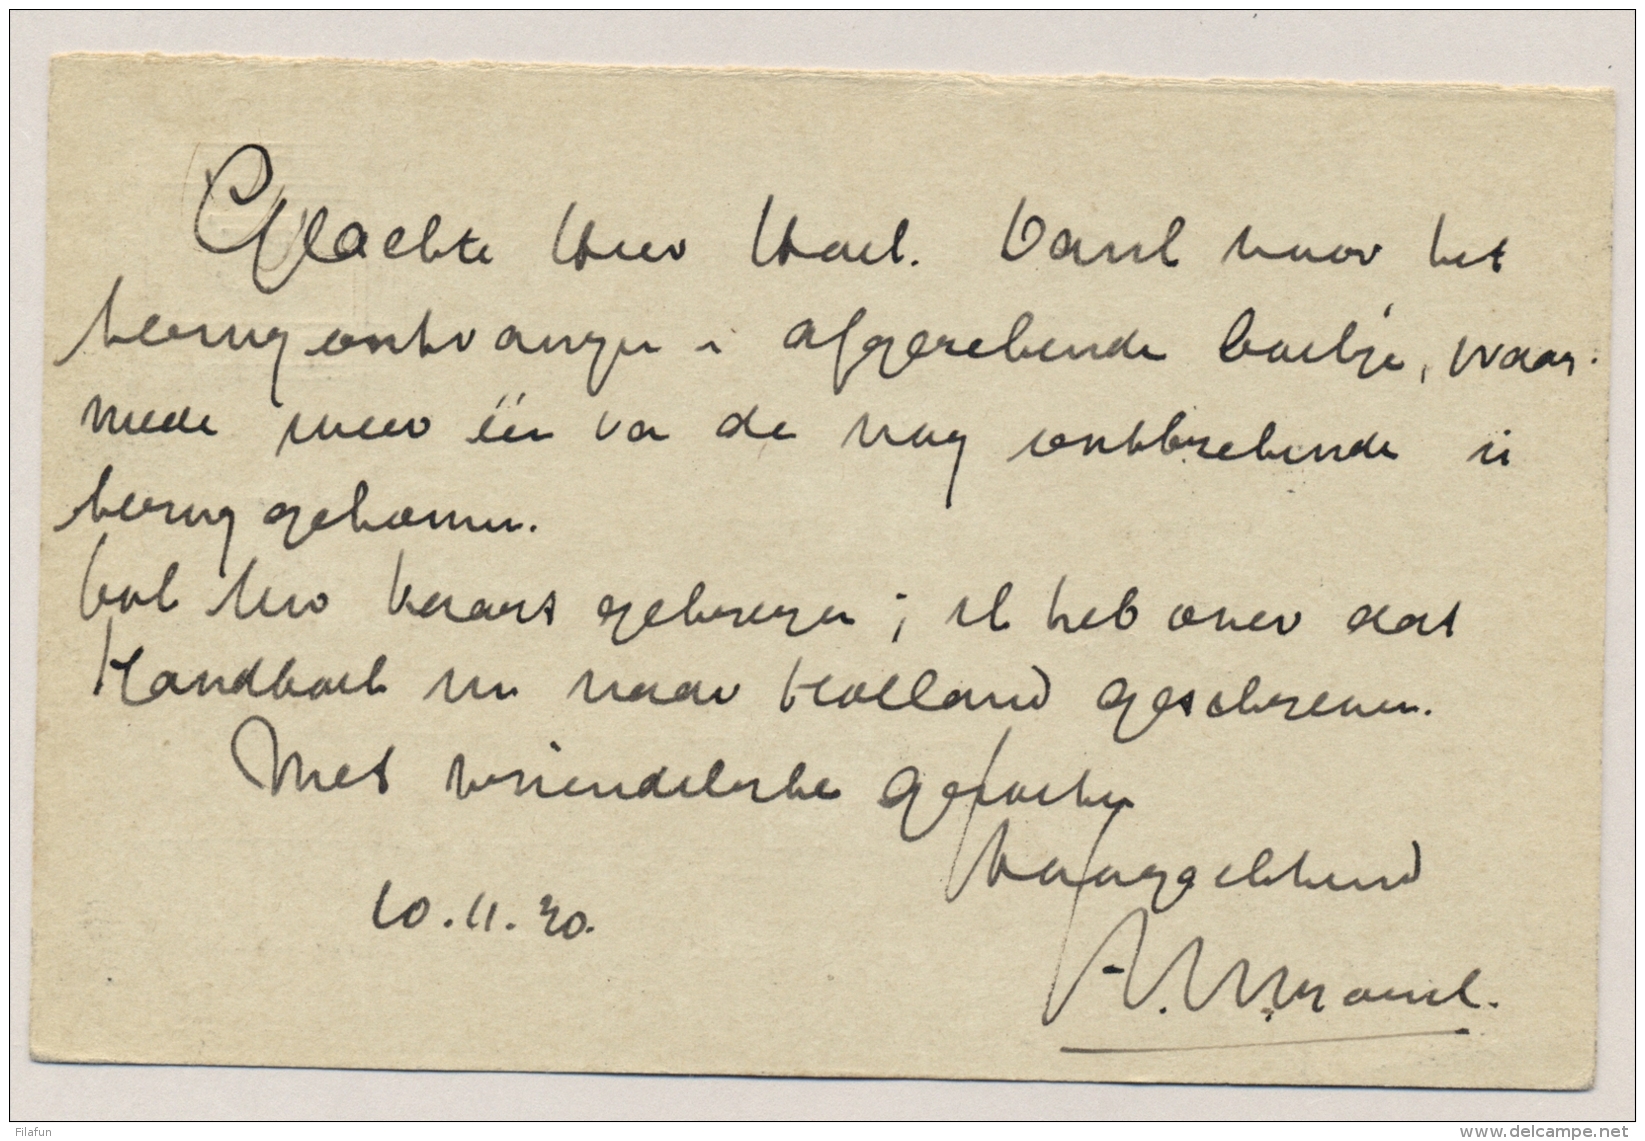 Geachte Heer Hoek. Dank voor het
terug ontvangen afgerekende boekje, waar-
mede weer één van de nog ontbrekende is
terug gekomen.
Ook Uw kaart gekregen; ik heb over dat
Handboek nu naar Holland geschreven.
Met vriendelijke groeten
Hoogachtend
10.11.30.
Filafun www.delcampe.net